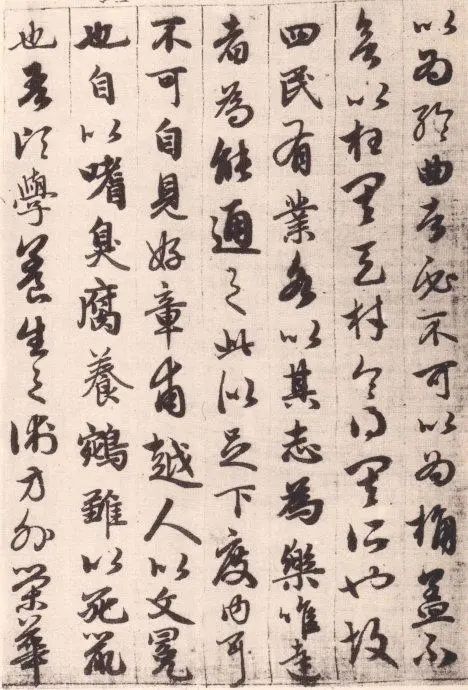 以為輪曲者必不可以為桷蓋不
欲以枉其天材令得其所也故
四民有業各以其志為樂唯達
者為能通之此似足下度内耳
不可自見好章甫越人以文冕
也自以嗜臭腐養鵷雛以死鼠
也吾頃學養生之術方外榮華